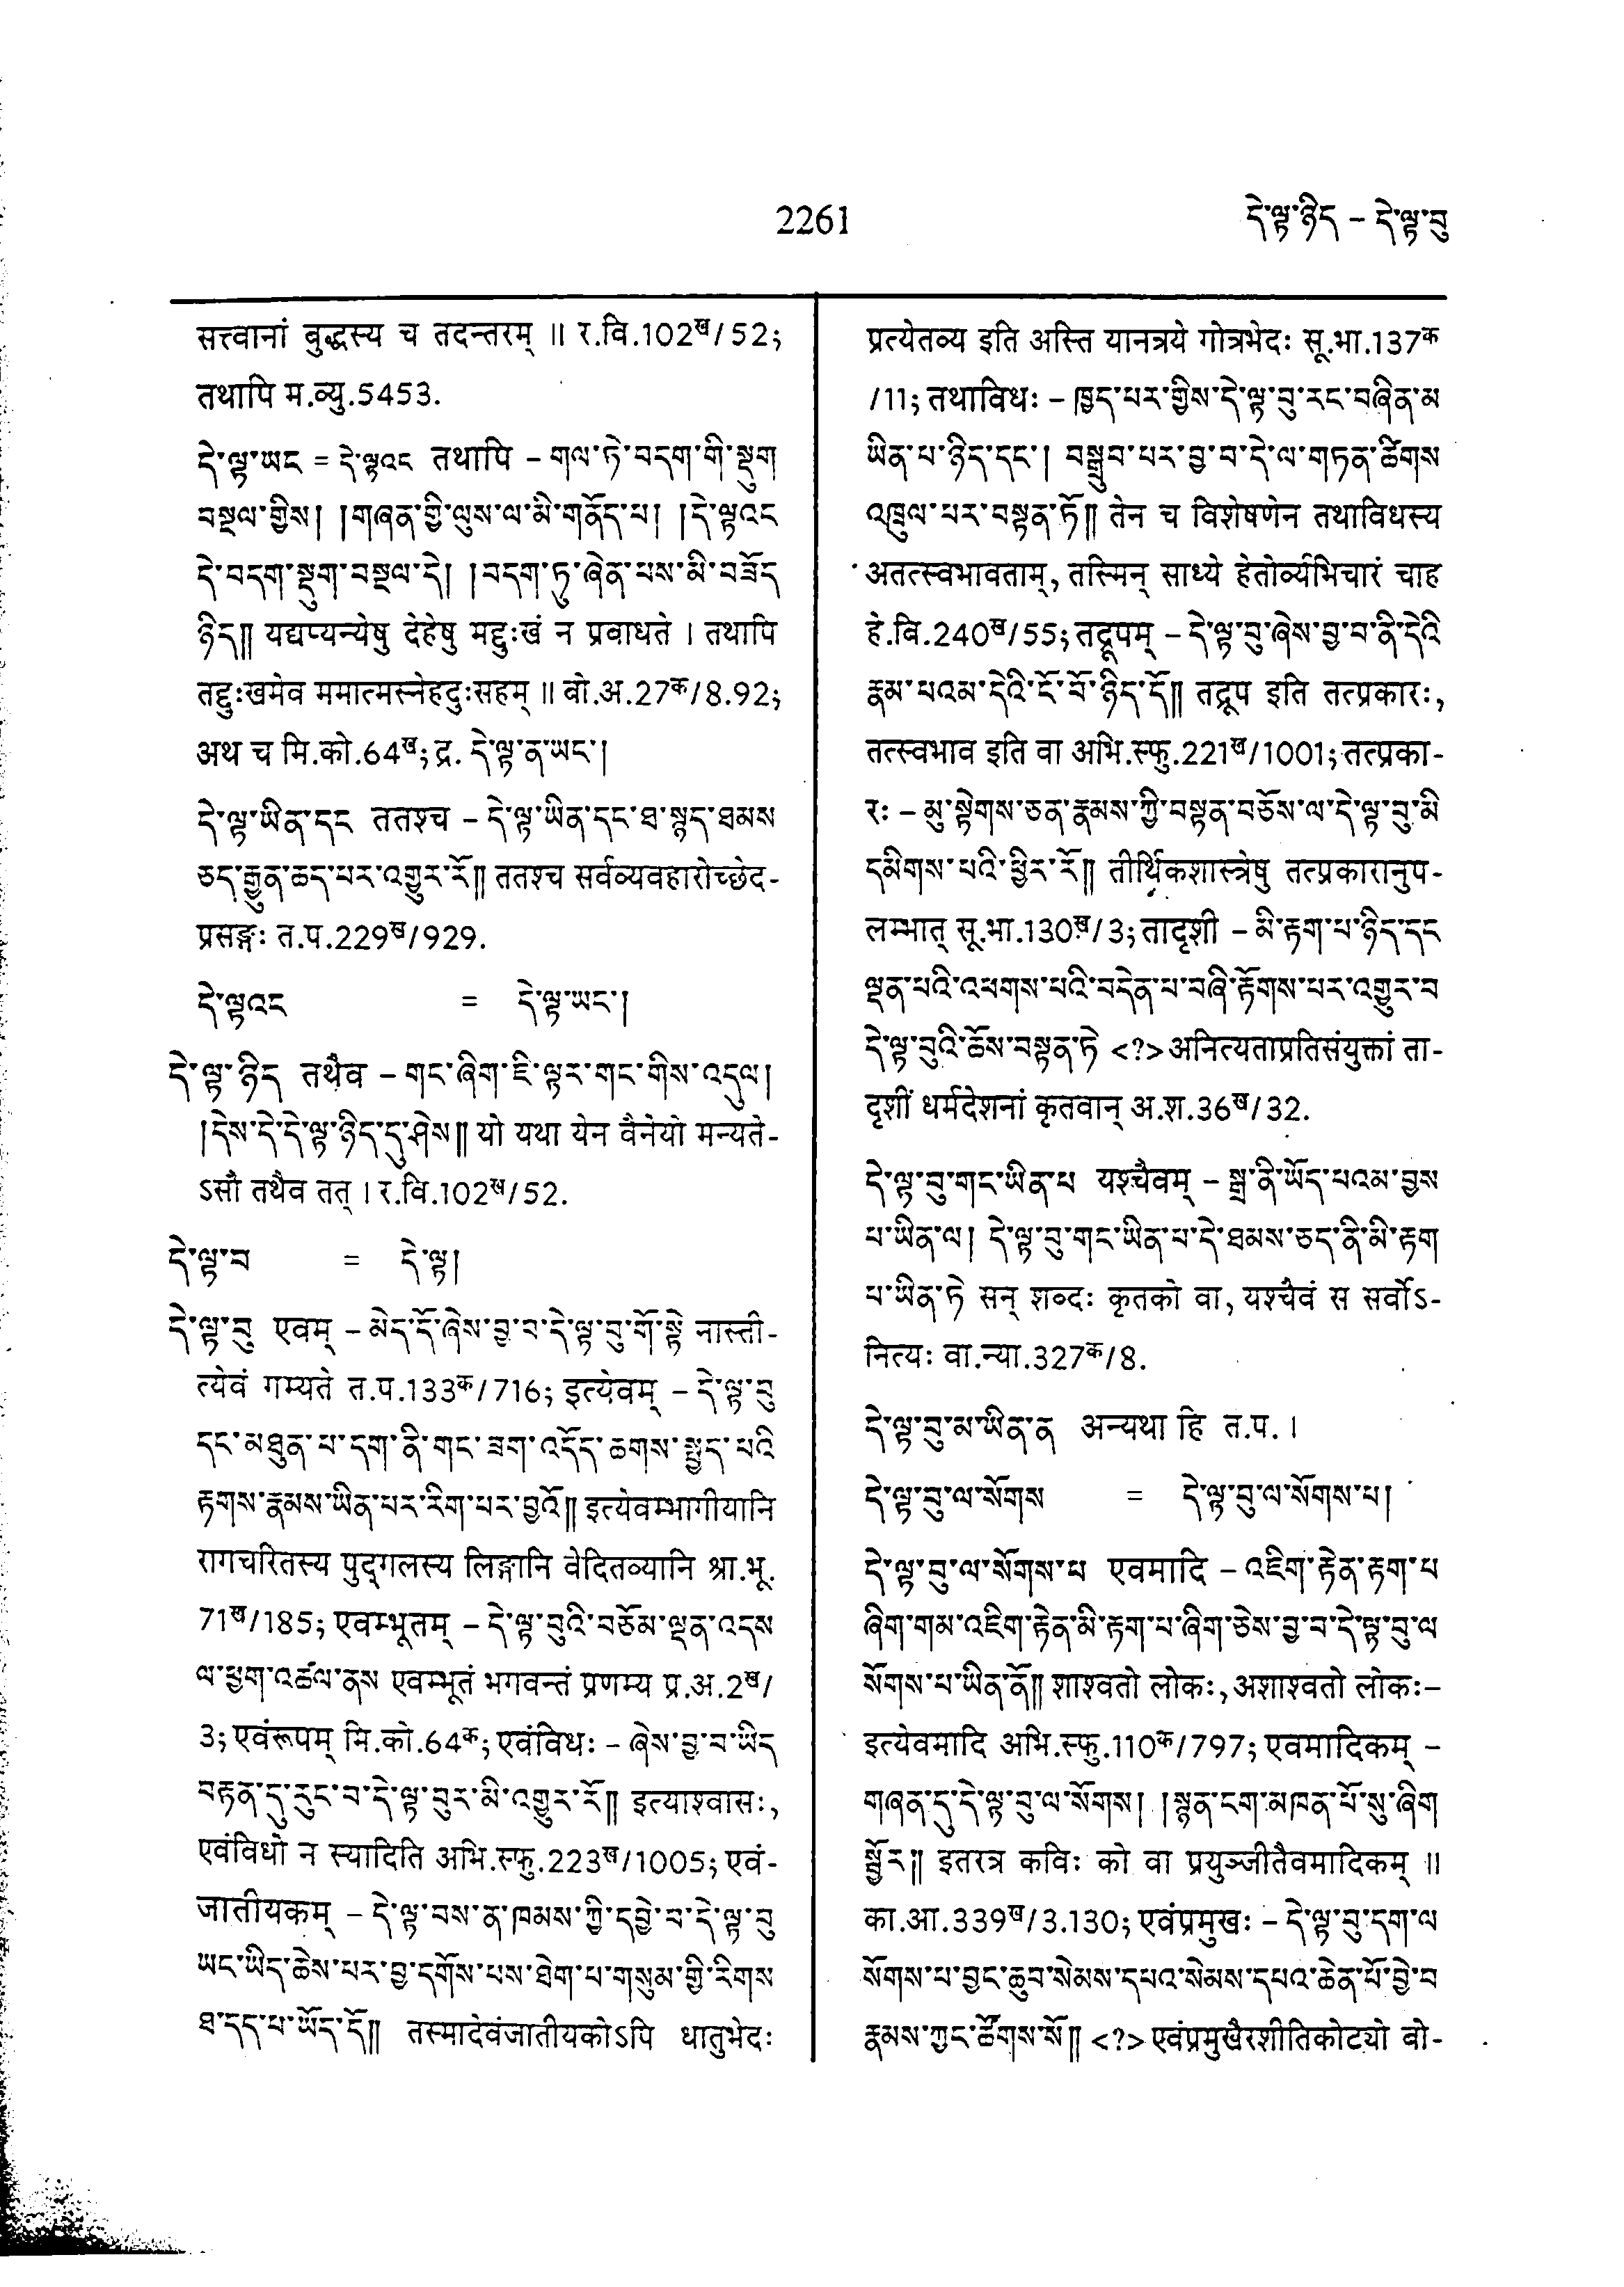 2261
དེ་ལྟ་ཉིད – དེ་ལྟ་བུ
सत्त्वानां बुद्धस्य च तदन्तरम् ॥ र.वि.102ख/52;
तथापि म.व्यु.5453.
དེ་ལྟ་ཡང = དེ་ལྟའང तथापि – གལ་ཏེ་བདག་གི་སྡུག
བསྔལ་གྱིས། །གཞན་གྱི་ལུས་ལ་མི་གནོད་པ། །དེ་ལྟའང
དེ་བདག་སྡུག་བསྔལ་དེ། །བདག་ཏུ་ཞེན་པས་མི་བཟོད
ཉིད༎ यद्यप्यन्येषु देहेषु मद्दुःखं न प्रबाधते । तथापि
तद्दुःखमेव ममात्मस्नेहदुःसहम् ॥ बो.अ.27क/8.92;
अथ च मि.को.64ख; द्र. དེ་ལྟ་ན་ཡང་།
དེ་ལྟ་ཡིན་དང ततश्च – དེ་ལྟ་ཡིན་དང་ཐ་སྙད་ཐམས
ཅད་རྒྱུན་ཆད་པར་འགྱུར་རོ༎ ततश्च सर्वव्यवहारोच्छेद-
प्रसङ्गः त.प.229ख/929.
དེ་ལྟའང = དེ་ལྟ་ཡང་།
དེ་ལྟ་ཉིད तथैव – གང་ཞིག་ཇི་ལྟར་གང་གིས་འདུལ།
།དེས་དེ་དེ་ལྟ་ཉིད་དུ་ཤེས༎ यो यथा येन वैनेयो मन्यते-
ऽसौ तथैव तत् । र.वि.102ख/52.
དེ་ལྟ་བ = དེ་ལྟ།
དེ་ལྟ་བུ एवम् – མེད་དོ་ཞེས་བྱ་བ་དེ་ལྟ་བུ་གོ་སྟེ नास्ती-
त्येवं गम्यते त.प.133क/716; इत्येवम् – དེ་ལྟ་བུ
དང་མཐུན་པ་དག་ནི་གང་ཟག་འདོད་ཆགས་སྤྱད་པའི
རྟགས་རྣམས་ཡིན་པར་རིག་པར་བྱའོ༎ इत्येवम्भागीयानि
रागचरितस्य पुद्गलस्य लिङ्गानि वेदितव्यानि श्रा.भू.
71ख/185; एवम्भूतम् – དེ་ལྟ་བུའི་བཅོམ་ལྡན་འདས
ལ་ཕྱག་འཚལ་ནས एवम्भूतं भगवन्तं प्रणम्य प्र.अ.2ख/
3; एवंरूपम् मि.को.64क; एवंविधः – ཞེས་བྱ་བ་ཡིད
བརྟན་དུ་རུང་བ་དེ་ལྟ་བུར་མི་འགྱུར་རོ༎ इत्याश्वासः,
एवंविधो न स्यादिति अभि.स्फु.223ख/1005; एवं-
जातीयकम् – དེ་ལྟ་བས་ན་ཁམས་ཀྱི་དབྱེ་བ་དེ་ལྟ་བུ
ཡང་ཡིད་ཆེས་པར་བྱ་དགོས་པས་ཐེག་པ་གསུམ་གྱི་རིགས
ཐ་དད་པ་ཡོད་དོ༎ तस्मादेवंजातीयकोऽपि धातुभेदः
प्रत्येतव्य इति अस्ति यानत्रये गोत्रभेदः सू.भा.137क
/11; तथाविधः – ཁྱད་པར་གྱིས་དེ་ལྟ་བུ་རང་བཞིན་མ
ཡིན་པ་ཉིད་དང་། བསྒྲུབ་པར་བྱ་བ་དེ་ལ་གཏན་ཚིགས
འཁྲུལ་པར་བསྟན་ཏོ༎ तेन च विशेषणेन तथाविधस्य
अतत्स्वभावताम्, तस्मिन् साध्ये हेतोर्व्यभिचारं चाह
हे.वि.240ख/55; तद्रूपम् – དེ་ལྟ་བུ་ཞེས་བྱ་བ་ནི་དེའི
རྣམ་པའམ་དེའི་ངོ་བོ་ཉིད་དོ༎ तद्रूप इति तत्प्रकारः,
तत्स्वभाव इति वा अभि.स्फु.221ख/1001; तत्प्रका-
रः – མུ་སྟེགས་ཅན་རྣམས་ཀྱི་བསྟན་བཅོས་ལ་དེ་ལྟ་བུ་མི
དམིགས་པའི་ཕྱིར་རོ༎ तीर्थिकशास्त्रेषु तत्प्रकारानुप-
लम्भात् सू.भा.130ख/3; तादृशी – མི་རྟག་པ་ཉིད་དང
ལྡན་པའི་འཕགས་པའི་བདེན་པ་བཞི་རྟོགས་པར་འགྱུར་བ
དེ་ལྟ་བུའི་ཆོས་བསྟན་ཏེ <?> अनित्यताप्रतिसंयुक्तां ता-
दृशीं धर्मदेशनां कृतवान् अ.श.36ख/32.
དེ་ལྟ་བུ་གང་ཡིན་པ यश्चैवम् – སྒྲ་ནི་ཡོད་པའམ་བྱས
པ་ཡིན་ལ། དེ་ལྟ་བུ་གང་ཡིན་པ་དེ་ཐམས་ཅད་ནི་མི་རྟག
པ་ཡིན་ཏེ सन् शब्दः कृतको वा, यश्चैवं स सर्वोऽ-
नित्यः वा.न्या.327क/8.
དེ་ལྟ་བུ་མ་ཡིན་ན अन्यथा हि त.प. ।
དེ་ལྟ་བུ་ལ་སོགས = དེ་ལྟ་བུ་ལ་སོགས་པ།
དེ་ལྟ་བུ་ལ་སོགས་པ एवमादि – འཇིག་རྟེན་རྟག་པ
ཞིག་གམ་འཇིག་རྟེན་མི་རྟག་པ་ཞིག་ཅེས་བྱ་བ་དེ་ལྟ་བུ་ལ
སོགས་པ་ཡིན་ནོ༎ शाश्वतो लोकः, अशाश्वतो लोकः–
इत्येवमादि अभि.स्फु.110क/797; एवमादिकम् –
གཞན་དུ་དེ་ལྟ་བུ་ལ་སོགས། །སྙན་ངག་མཁན་པོ་སུ་ཞིག
སྦྱོར༎ इतरत्र कविः को वा प्रयुञ्जीतैवमादिकम् ॥
का.आ.339ख/3.130; एवंप्रमुखः – དེ་ལྟ་བུ་དག་ལ
སོགས་པ་བྱང་ཆུབ་སེམས་དཔའ་སེམས་དཔའ་ཆེན་པོ་བྱེ་བ
རྣམས་ཀྱང་ཚོགས་སོ༎ <?> एवंप्रमुखैरशीतिकोट्यो बो-